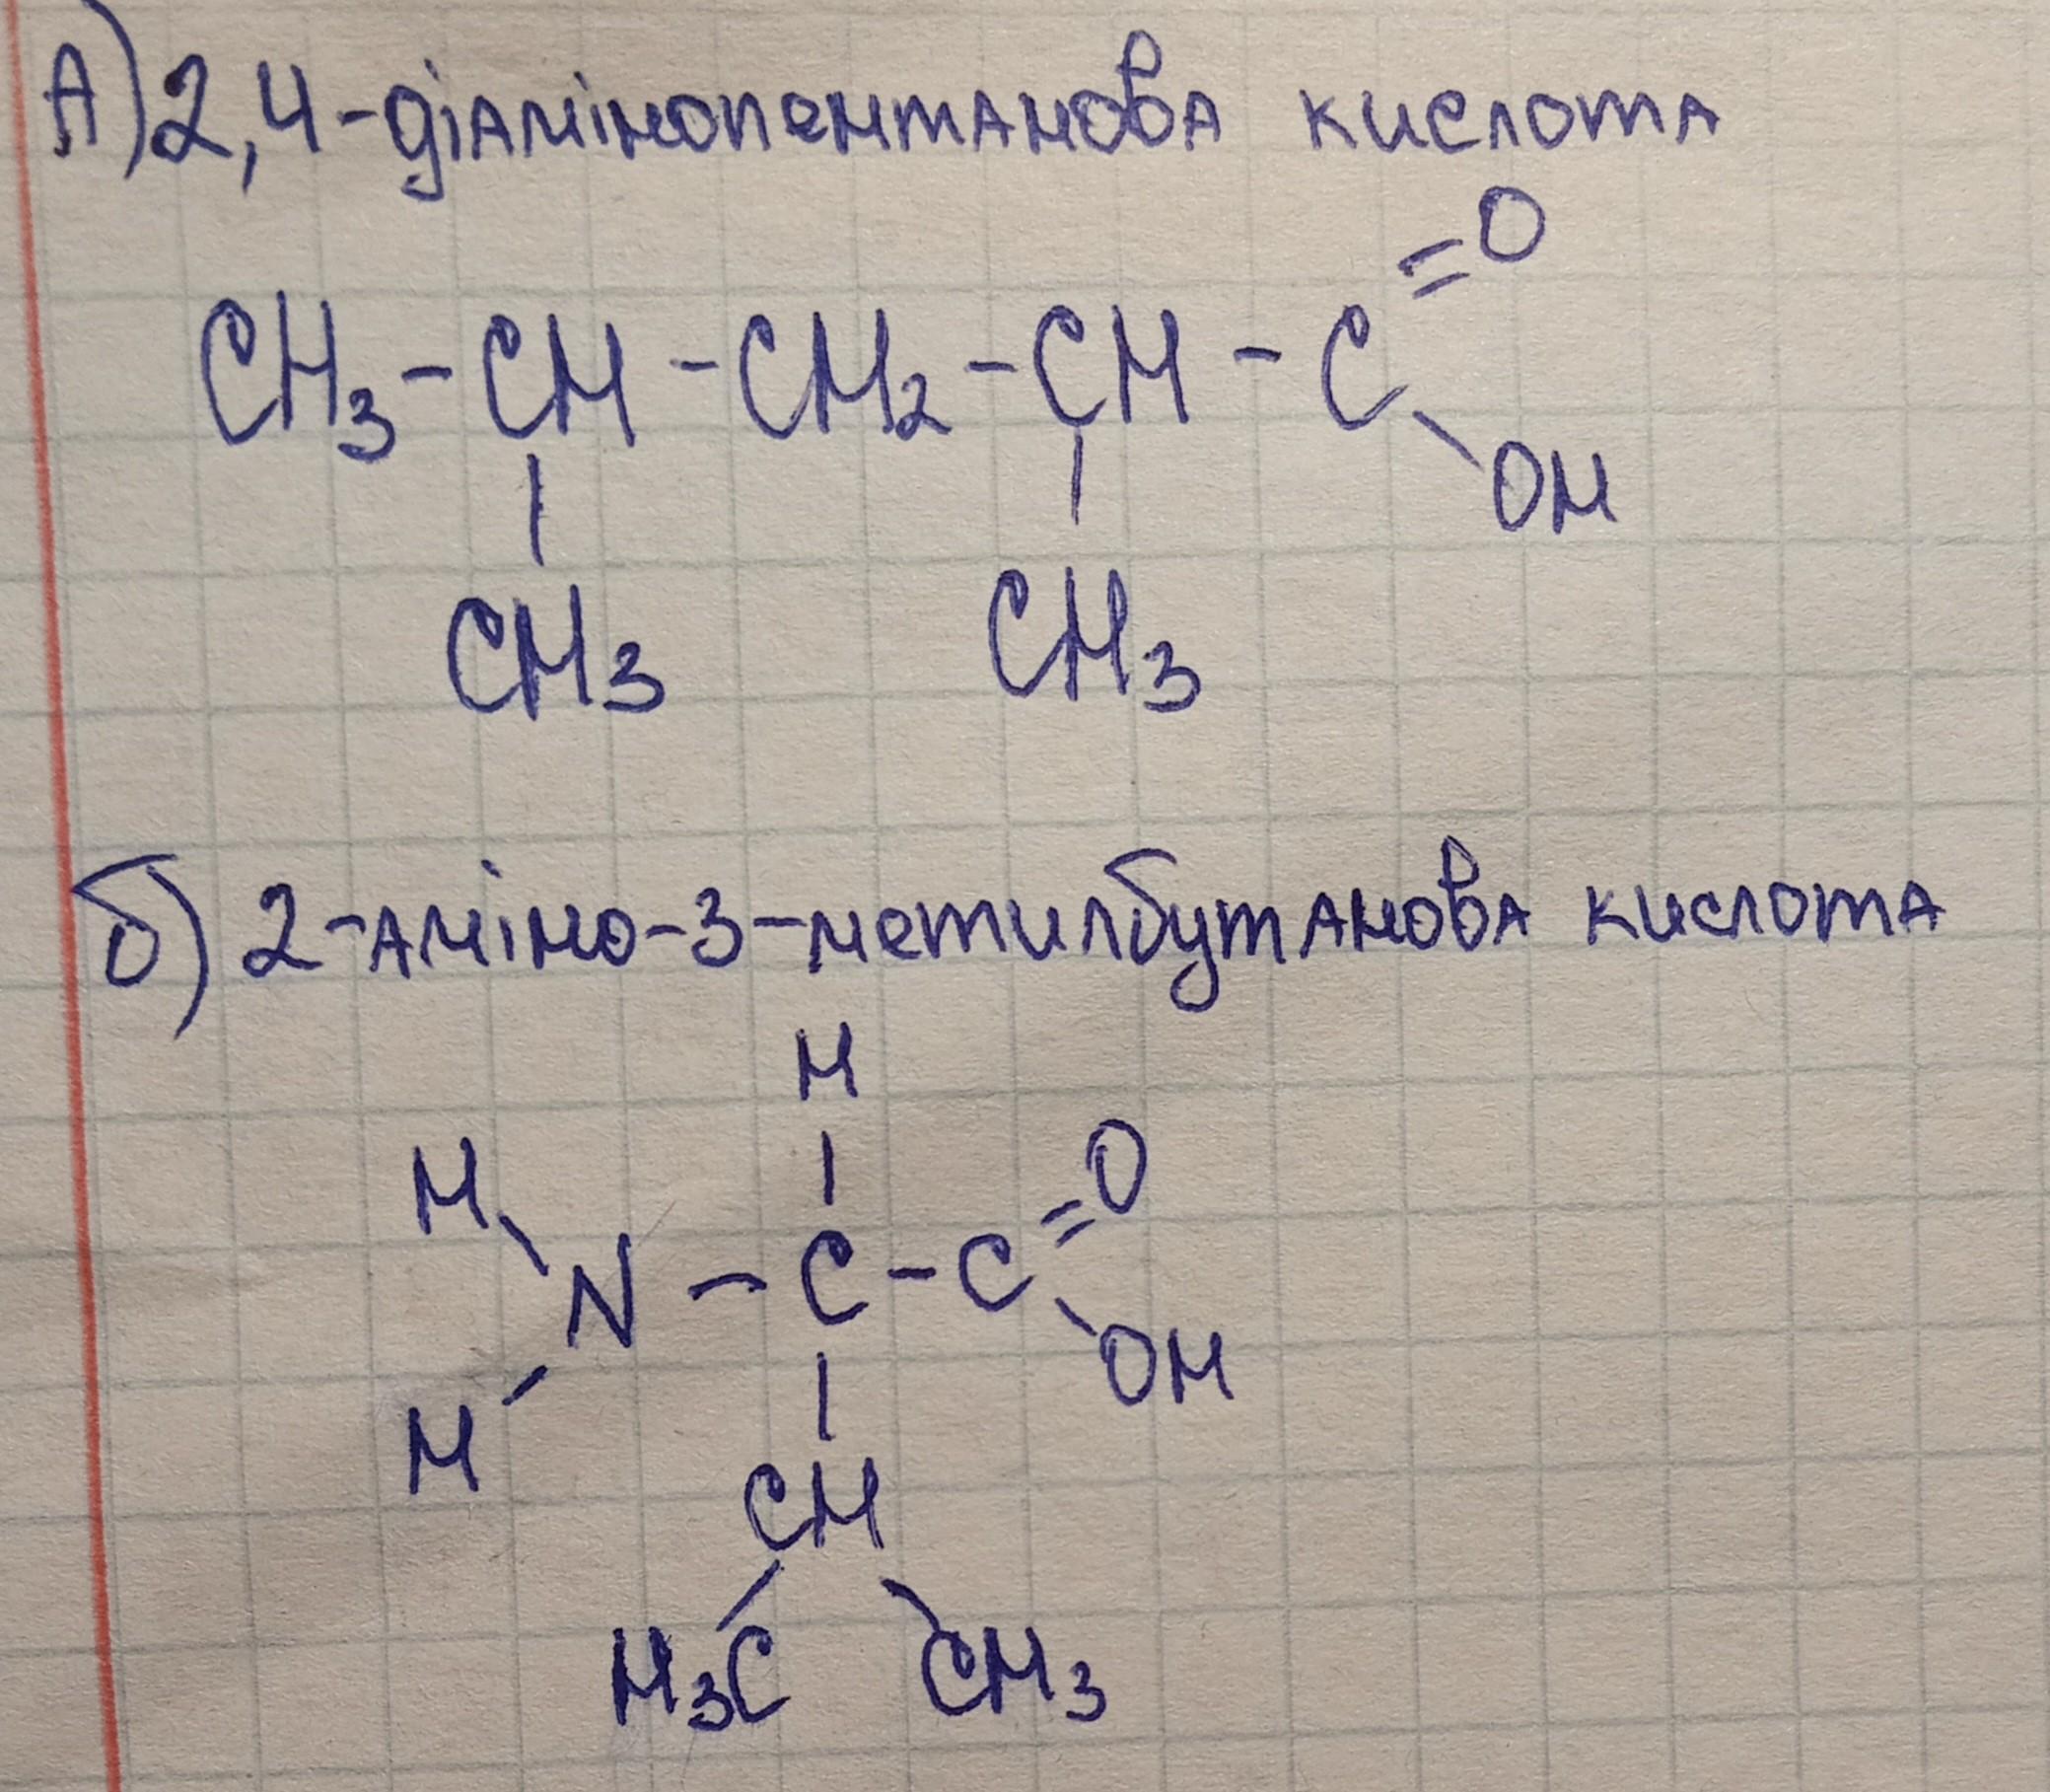 А) 2,4-діамінопентанова кислота
=O
CH₃-CH-CH₂-CH-C
OH
CH₃ CH₃
б) 2-аміно-3-метилбутанова кислота
H
H =O
N-C-C
OH
H
CH
H₃C CH₃